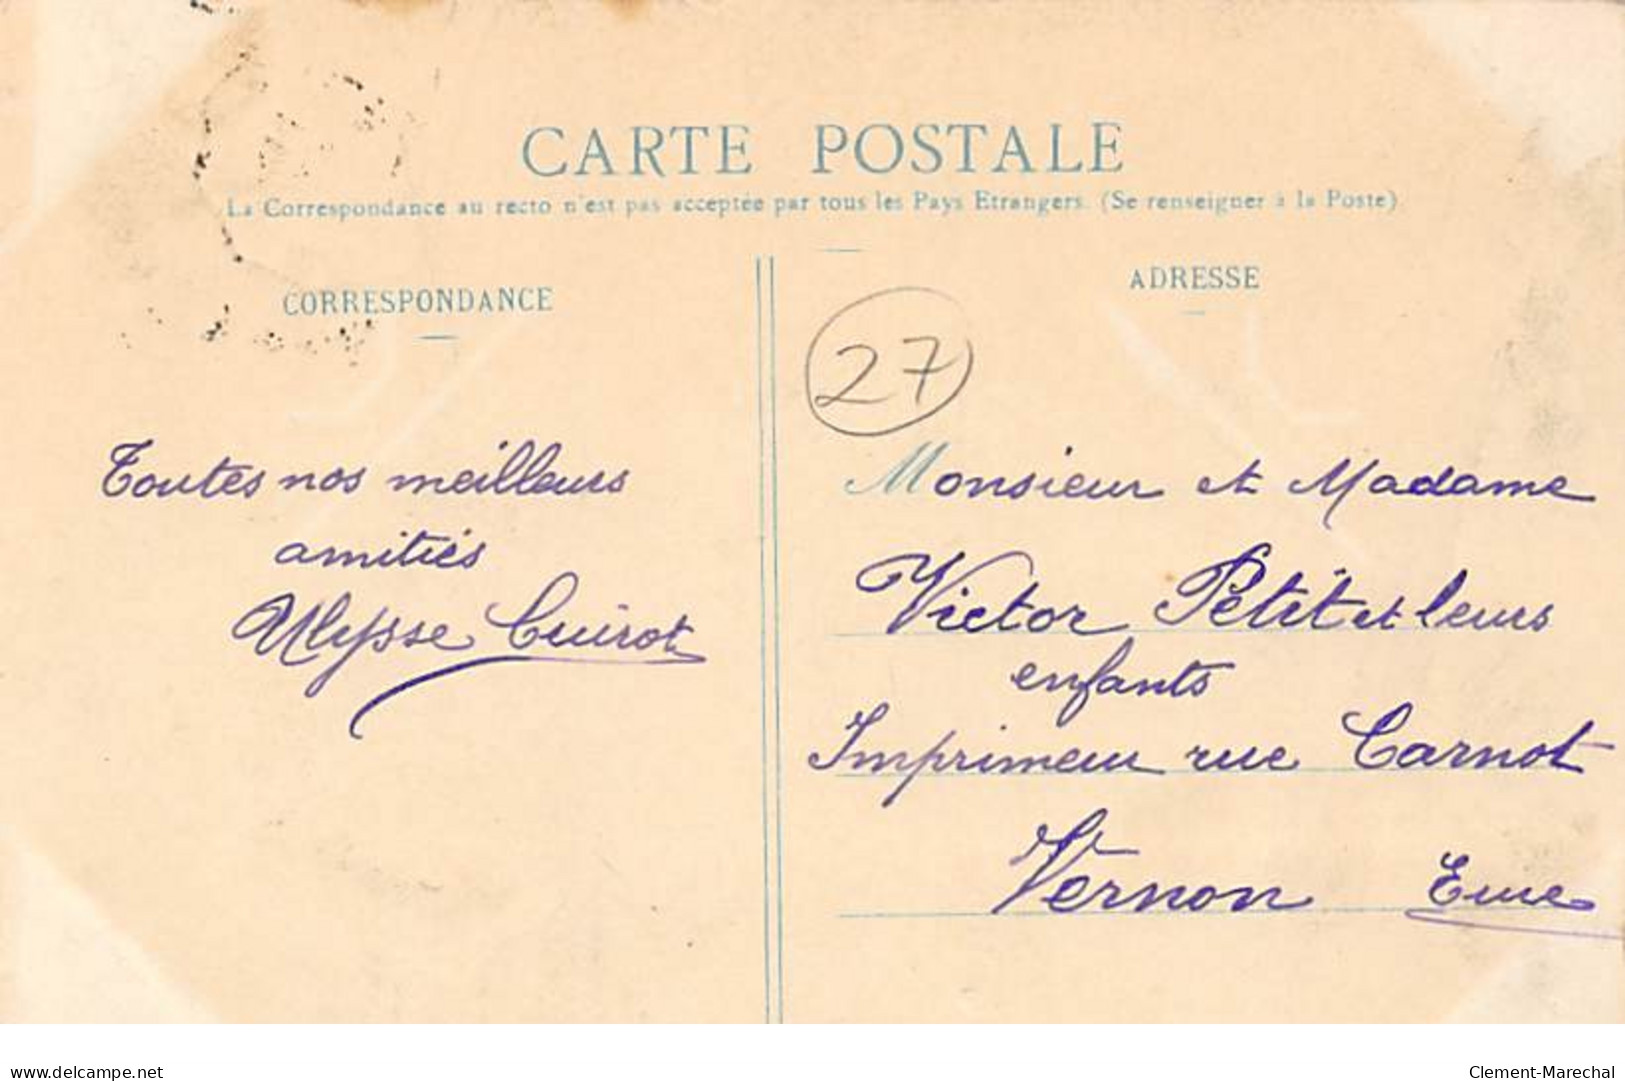 CARTE POSTALE
La Correspondance au recto n'est pas acceptée par tous les Pays Etrangers. (Se renseigner à la Poste)
CORRESPONDANCE
Toutes nos meilleurs
amitiés
Ulysse Cuirot
ADRESSE
27
Monsieur et Madame
Victor Petit et leurs
enfants
Imprimeur rue Carnot
Vernon Eure
delcampe.net
Clement-Marechal